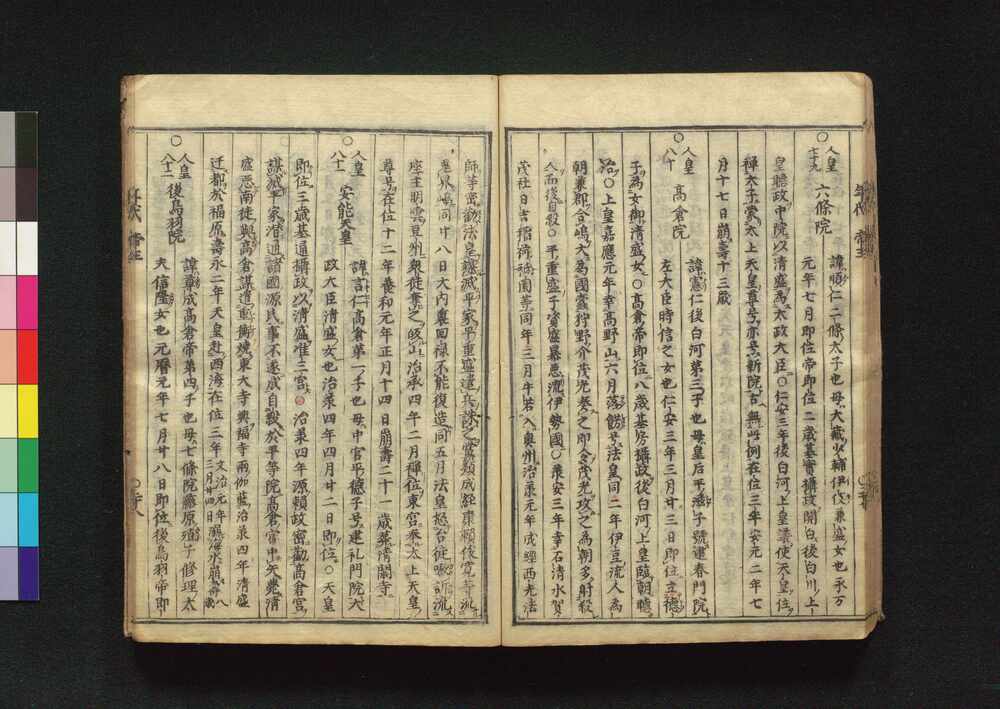 人皇
七十九
六條院
諱順仁二條太子也母大藏少輔伊伐兼盛女也永万
元年七月即位帝即位二歲基實攝政開白後白川上
皇聽政中院以清盛為太政大臣〇仁安三年後白河上皇議使天皇位
禅太子蒙太上天皇尊号亦号新院古無此例在位三年安元二年七
月十七日崩壽十三歲
人皇
八十
高倉院
諱憲仁後白河第三子也母皇后平滋子號建春門院
左大臣時信之女也仁安三年三月廿三日即位立德
子為女御清盛女〇高倉帝即位八歲基房攝政後白河上皇臨朝聽
政〇上皇嘉應元年幸高野山六月落飾号法皇同二年伊豆流人為
朝兼郡合嶋大為國蠹狩野介茂光奏之即令茂光攻之為朝多射殺
人而後自殺〇平重盛子資盛暴悪流伊勢國〇承安三年幸石清水賀
茂社日吉稲荷祇園等同年三月牛若入奥州治承元年成經西光法
師等密勸法皇謀滅平家平重盛遣兵誅之黨類成經康頼俊寛等流
鬼界嶋同廿八日大内裏回禄不能復造同五月法皇怒台徒嗷訴流
座主明雲豆州衆徒奪之皈山治承四年二月禪位東宮奉太上天皇
尊号在位十二年養和元年正月十四日崩壽二十一歲葬清閑寺
人皇
八十一
安能天皇
諱言仁高倉第一子也母中宮平德子号建礼門院大
政大臣清盛女也治承四年四月廿二日即位〇天皇
即位三歲基通攝政以清盛准三宮〇治承四年源頼政密勸高倉宮
謀滅平家潜通諸國源氏事不遂成自殺於平等院高倉宮中矢薨清
盛悪南徒與高倉謀遣重衡燒東大寺興福寺兩伽藍治承四年清盛
迁都於福原壽永二年天皇赴西海在位三年
文治元年
三月廿四日
人皇
八十二
後鳥羽院
諱尊成高倉帝第四子也母七條院藤原殖子修理太
夫信隆女也元曆元年七月廿八日即位後鳥羽帝即